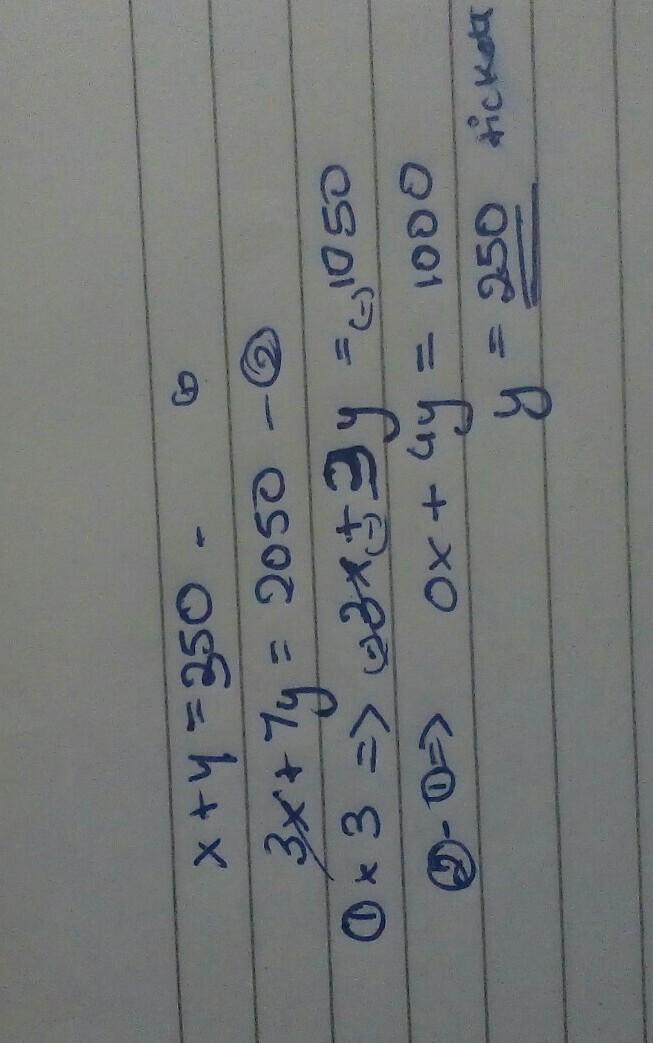 x + y = 350 - ①
3x + 7y = 2050 - ②
① × 3 => (-)3x +(-) 3y = (-)1050
② - ① => 0x + 4y = 1000
y = 250 tickets